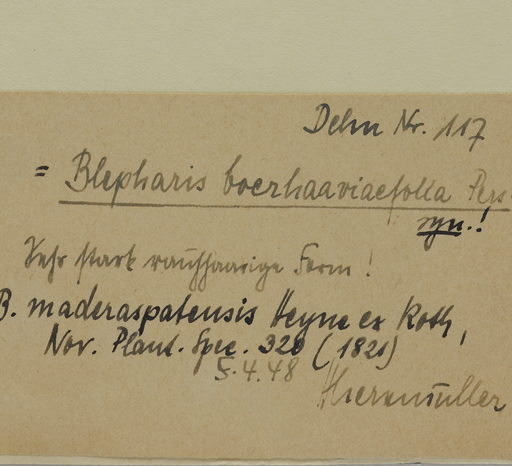 Dehn Nr. 117
= Blepharis boerhaaviaefolia Pers.
syn.!
Sehr stark rauhhaarige Form!
B. maderaspatensis Heyne ex Roth,
Nov. Plant. Spec. 320 (1821)
5.4.48